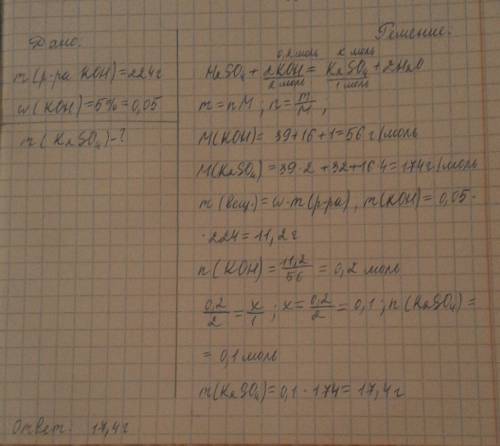 Дано:
m(р-ра KOH)=224г
w(KOH)=5%=0,05
m(K₂SO₄)-?
Решение.
0,2моль x моль
H₂SO₄+2KOH=K₂SO₄+2H₂O
2 моль 1 моль
m=nM; n=m/M;
M(KOH)=39+16+1=56 г/моль
M(K₂SO₄)=39·2+32+16·4=174г/моль
m(вещ.)=w·m(р-ра), m(KOH)=0,05·
·224=11,2г
n(KOH)=11,2/56=0,2 моль
0,2/2=x/1; x=0,2/2=0,1; n(K₂SO₄)=
=0,1моль
m(K₂SO₄)=0,1·174=17,4г
Ответ: 17,4г